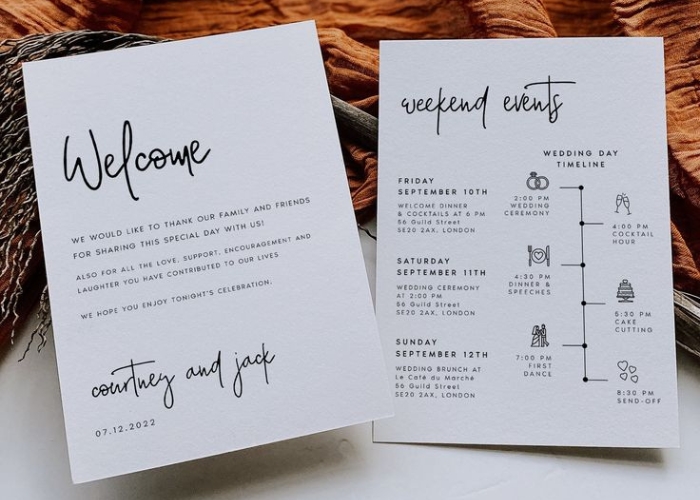 Welcome
WE WOULD LIKE TO THANK OUR FAMILY AND FRIENDS
FOR SHARING THIS SPECIAL DAY WITH US!
ALSO FOR ALL THE LOVE, SUPPORT, ENCOURAGEMENT AND
LAUGHTER YOU HAVE CONTRIBUTED TO OUR LIVES
WE HOPE YOU ENJOY TONIGHT'S CELEBRATION.
courtney and jack
07.12.2022
weekend events
FRIDAY
SEPTEMBER 10TH
WELCOME DINNER
& COCKTAILS AT 6 PM
56 Guild Street
SE20 2AX, LONDON
SATURDAY
SEPTEMBER 11TH
WEDDING CEREMONY
AT 2:00 PM
56 Guild Street
SE20 2AX, LONDON
SUNDAY
SEPTEMBER 12TH
WEDDING BRUNCH AT
Le Café du Marché
56 Guild Street
SE20 2AX, LONDON
WEDDING DAY
TIMELINE
2:00 PM
WEDDING
CEREMONY
4:00 PM
COCKTAIL
HOUR
4:30 PM
DINNER &
SPEECHES
5:30 PM
CAKE
CUTTING
7:00 PM
FIRST
DANCE
8:30 PM
SEND-OFF